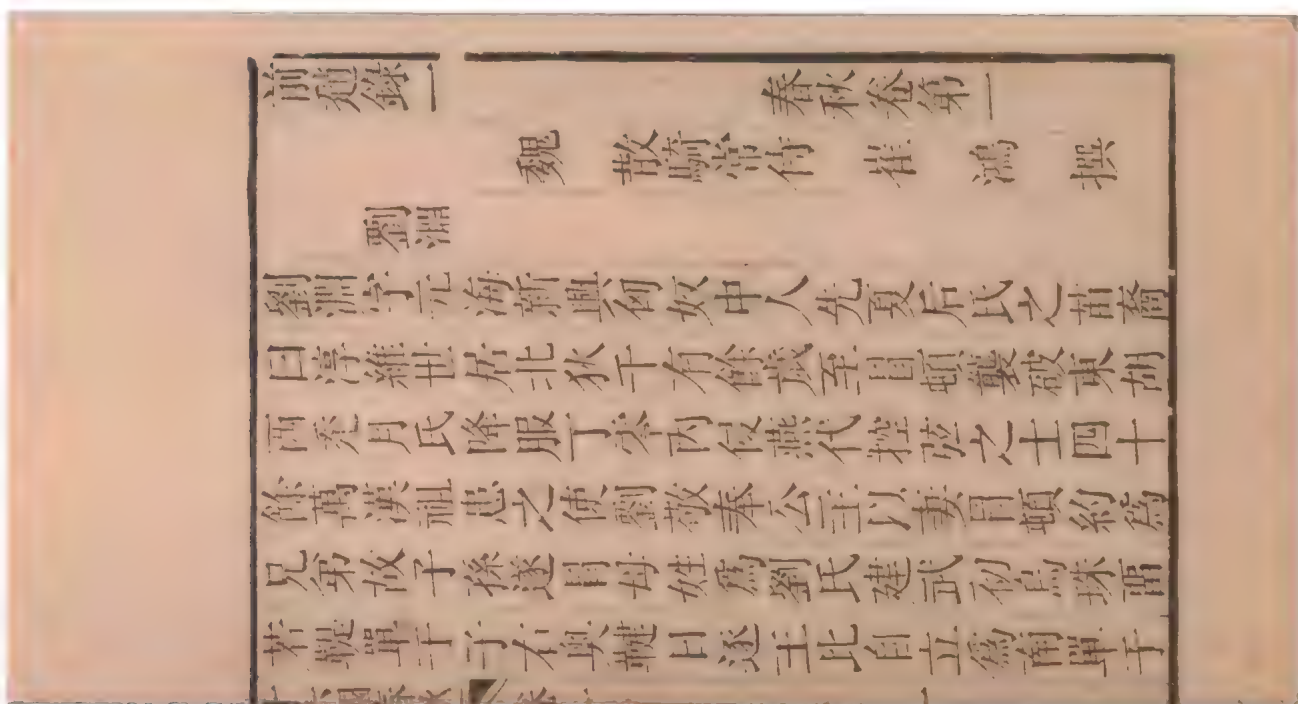 前趙錄一 春秋卷第一
魏 散騎常侍 崔 鴻 撰
劉淵
劉淵字元海新興匈奴中人先夏后氏之苗裔
曰淳維世居北狄千有餘歲至冒頓襲破東胡
西走月氏降服丁零內侵燕代控弦之士四十
餘萬漢祖患之使劉敬奉公主以妻冒頓約爲
兄弟故子孫遂冒母姓爲劉氏建武初烏珠留
若鞮單于子右奧鞬日逐王比自立爲南單于